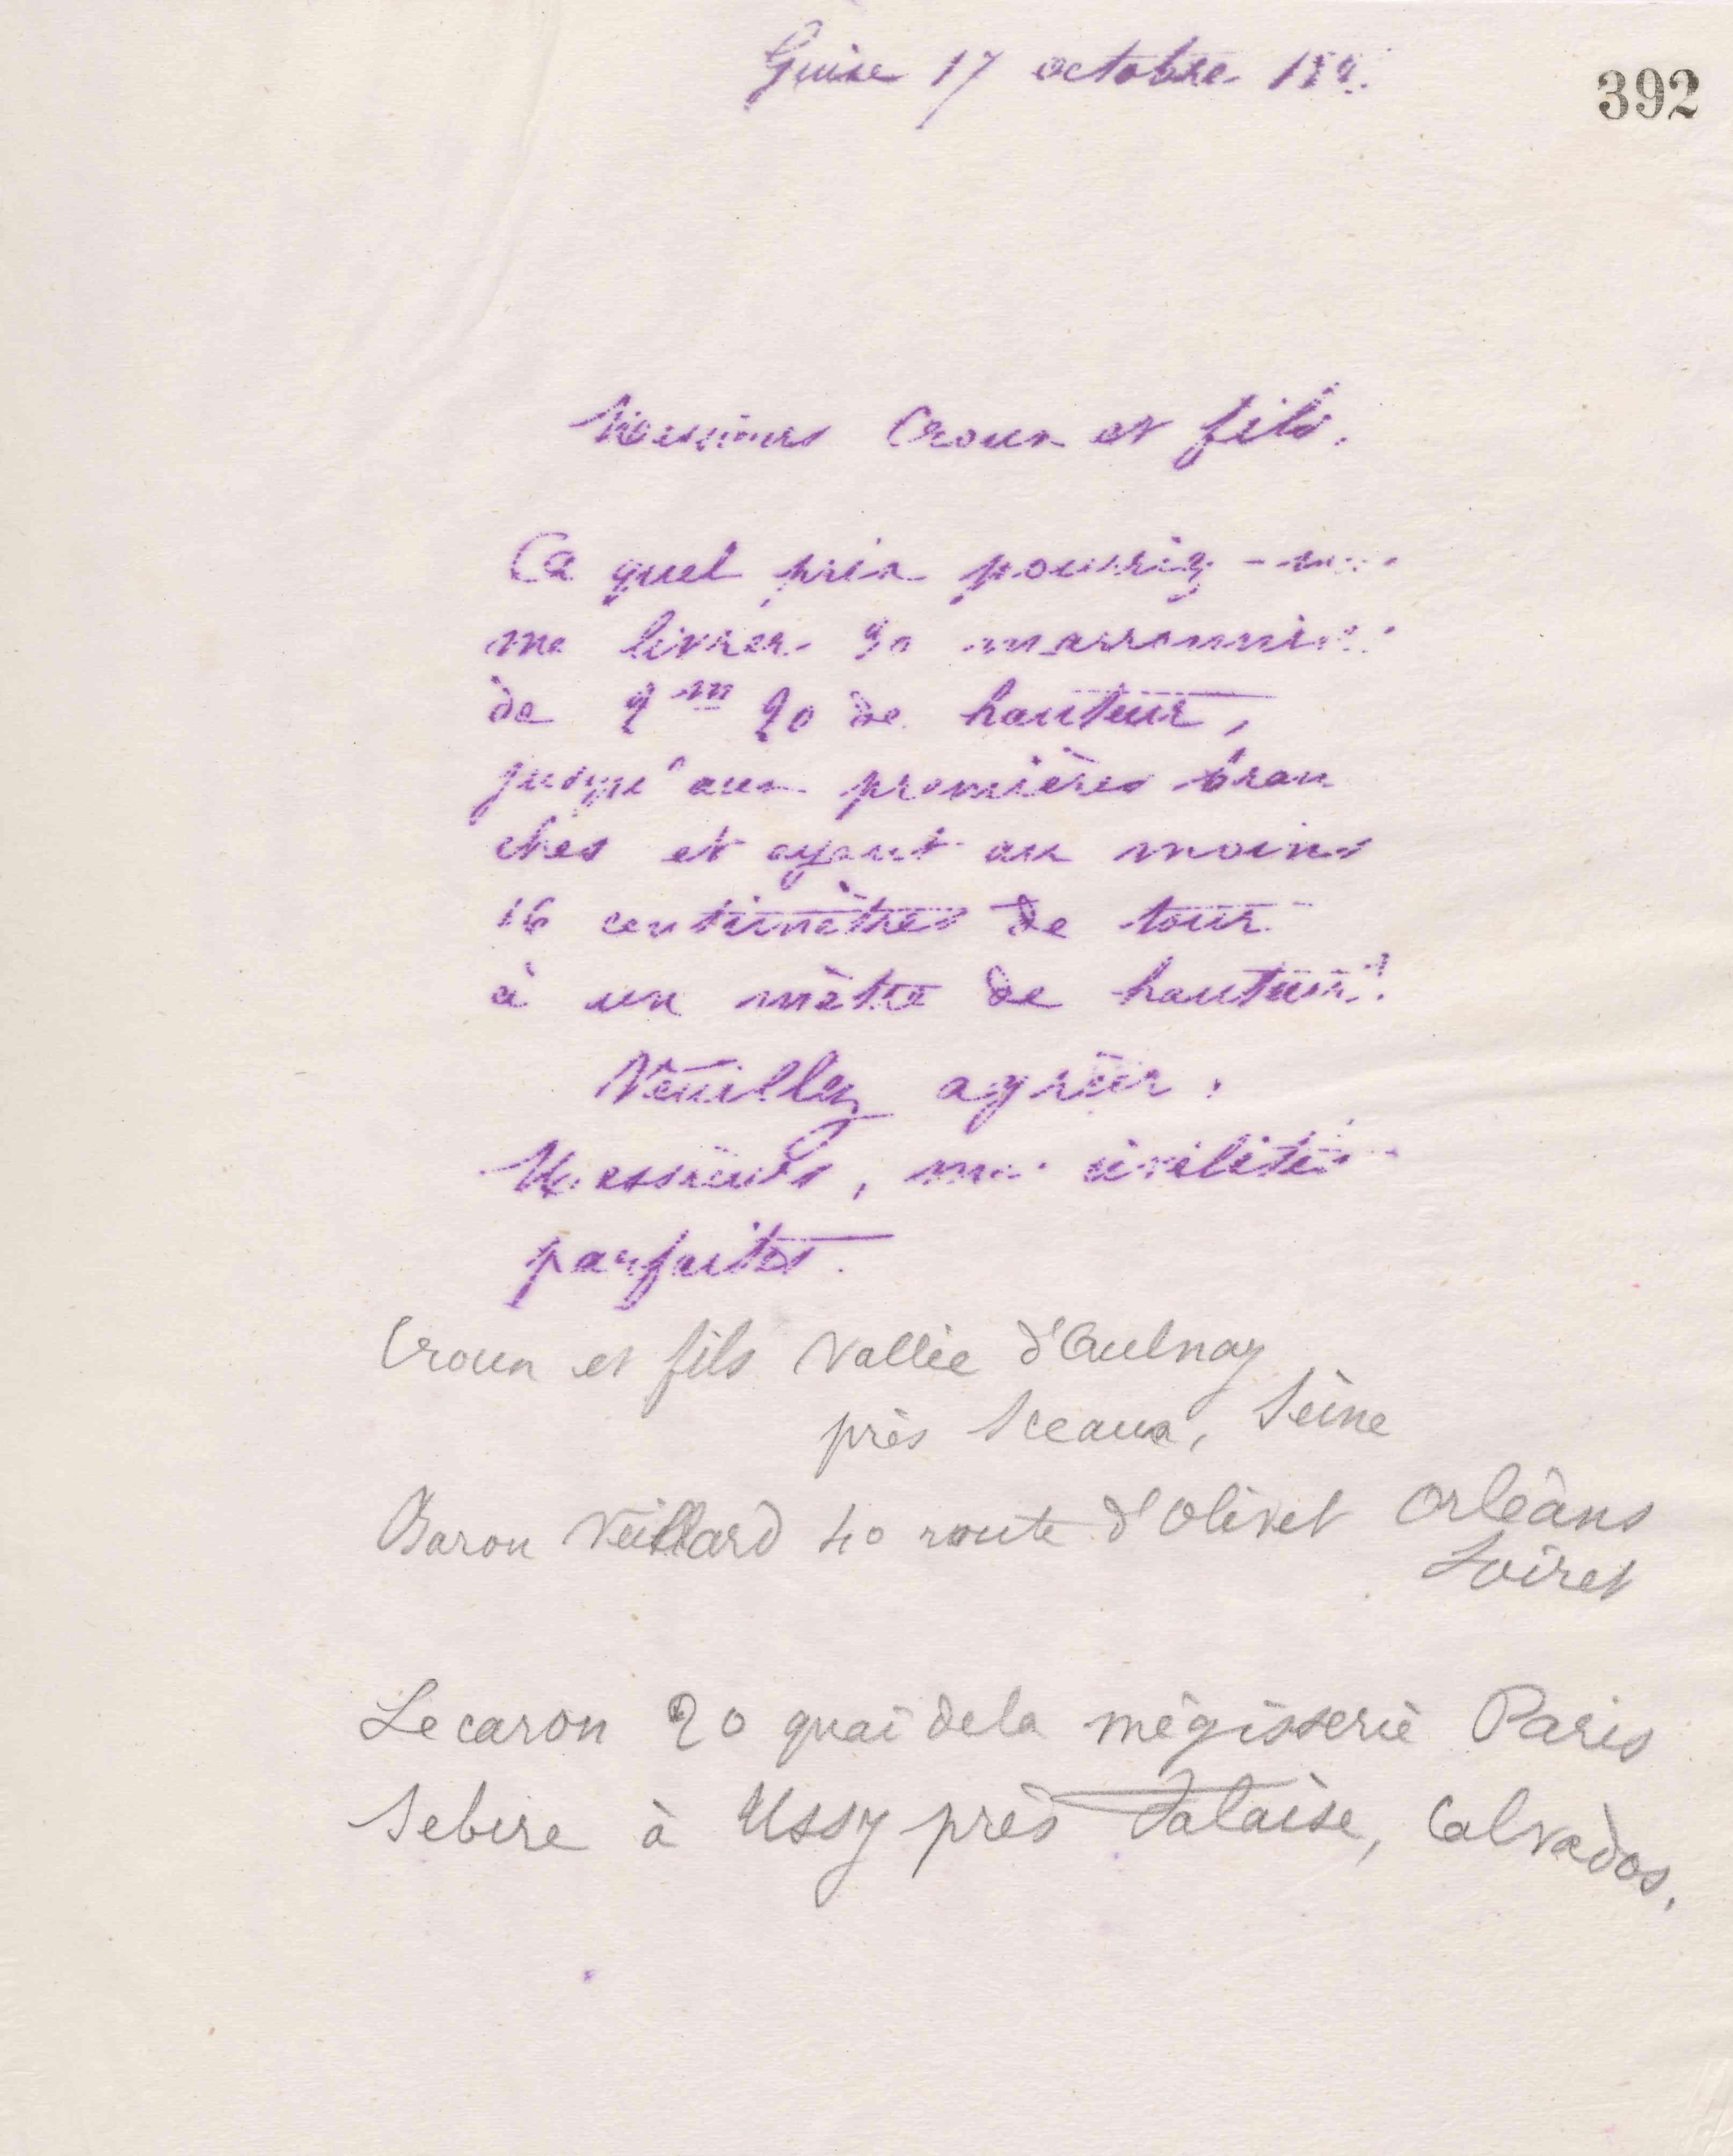 Guise 17 octobre
392
Messieurs Croux et fils.
A quel prix pourriez-vous
me livrer 50 marronniers
de 2m 20 de hauteur,
jusqu'aux premières bran
ches et ayant au moins
16 centimètres de tour
à un mètre de hauteur?
Veuillez agréer,
Messieurs, mes civilités
parfaites.
Croux et fils Vallée d'Aulnay
près Sceaux, Seine
Baron Veillard 40 route d'Olivet Orléans
Loiret
Lecaron 20 quai de la mégisserie Paris
Sebire à Ussy près Falaise, Calvados.